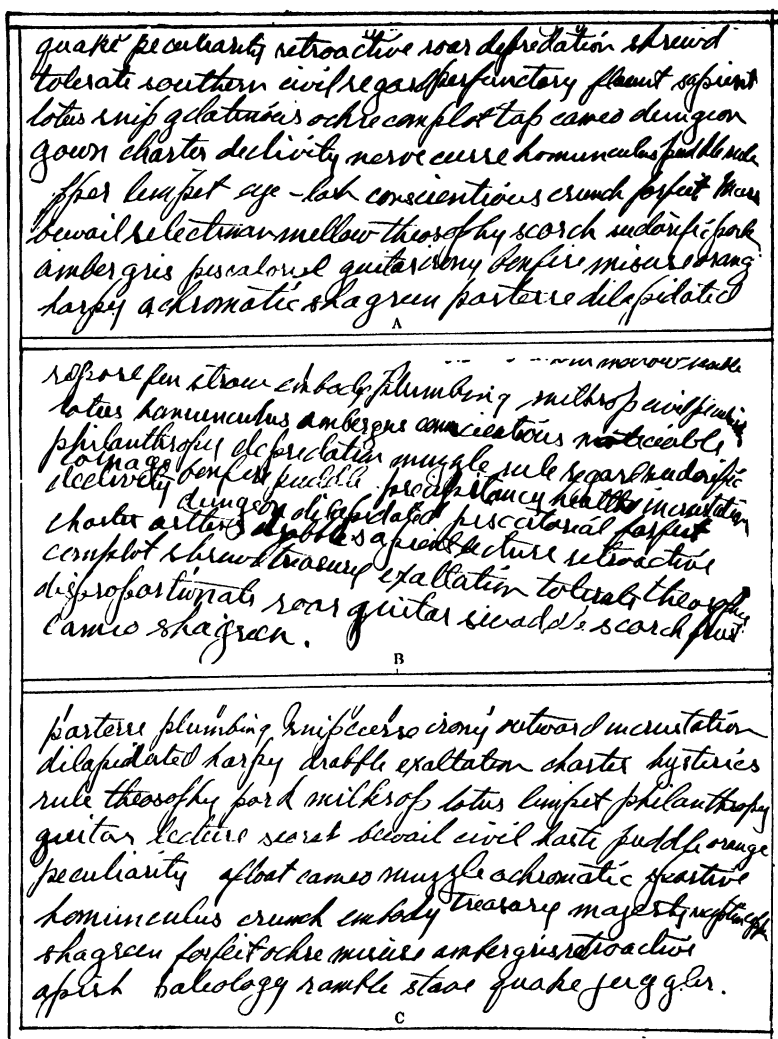 quake peculiarity retroactive roar depredation shrewd
tolerate southern civil regard perfunctory flaunt sapient
lotus snip gelatinous ochre complot tap cameo dungeon
gown charter declivity nerve curse homunculus puddle rule
limpet eye-lash conscientious crunch forfeit
bewail selectman mellow theosophy scorch sudorific pork
ambergris piscatorial guitar irony bonfire misuse orang
harpy achromatic shagreen parterre dilapidated
A
straw embody plumbing milksop civil
lotus homunculus ambergris conscientious noticeable
philanthropy depredation muzzle rule regard sudorific
declivity bonfire puddle precipitancy incrustation
dungeon dilapidated piscatorial forfeit
charter drabble sapient lecture retroactive
complot shrewd treasure exaltation tolerate theosophy
disproportionate roar guitar scorch
cameo shagreen.
B
parterre plumbing snip irony outward incrustation
dilapidated harpy drabble exaltation charter hysterics
rule theosophy pard milksop lotus limpet philanthropy
guitar lecture secret bewail civil haste puddle orange
peculiarity afloat cameo muzzle achromatic
homunculus crunch embody treasure majesty
shagreen forfeit ochre misuse ambergris retroactive
apish ramble stave quake juggler.
C